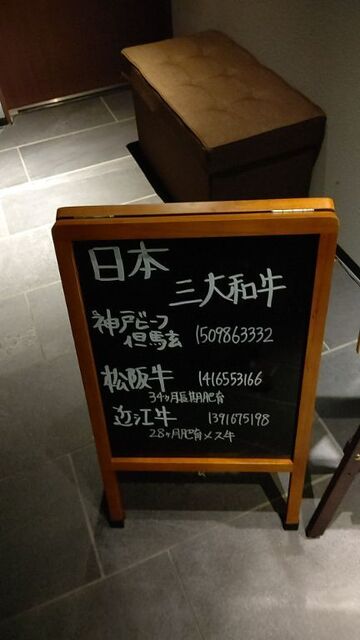 日本
三大和牛
神戸ビーフ
但馬玄 1509863332
松阪牛 1416553166
34ヶ月長期肥育
近江牛 1391675198
28ヶ月肥育メス牛